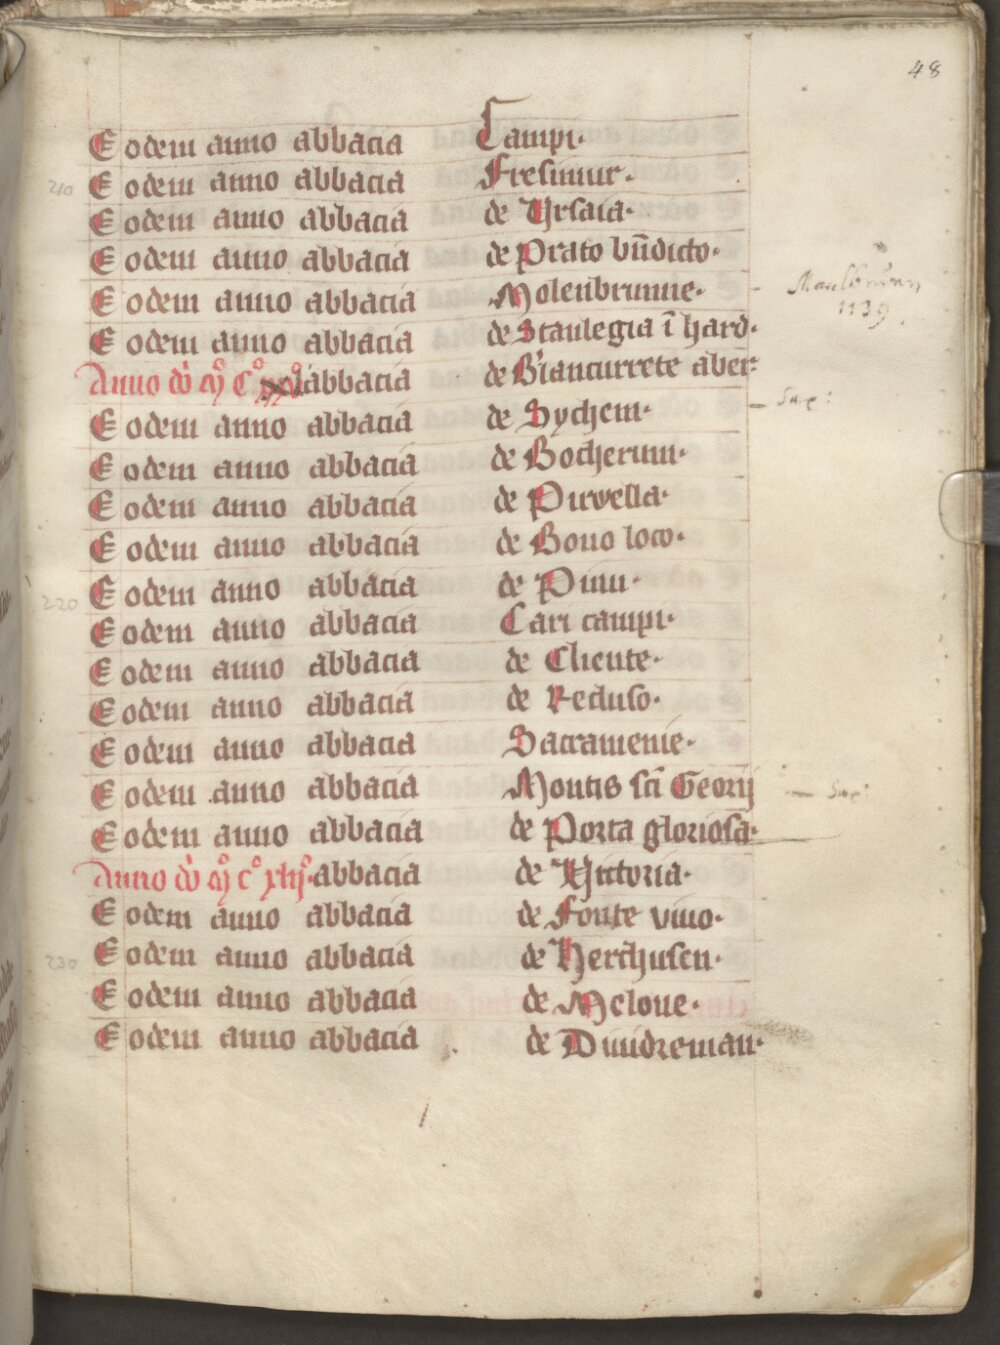 48
Eodem anno abbacia Campi·
210 Eodem anno abbacia Fresimur·
Eodem anno abbacia de Ursaia·
Eodem anno abbacia de Prato bn̄dicto·
Eodem anno abbacia Molenbrunne·
1139
Eodem anno abbacia de Stanlegia ī hard·
Anno do͞ m̊ Cº abbacia de Biancurrete aber·
Eodem anno abbacia de Sychem· – Sup:
Eodem anno abbacia de Bocherium·
Eodem anno abbacia de Pirvella·
Eodem anno abbacia de Bono loco·
220 Eodem anno abbacia de Pinu·
Eodem anno abbacia Cari campi·
Eodem anno abbacia de Cliente·
Eodem anno abbacia de Recluso·
Eodem anno abbacia Sacramenie·
Eodem anno abbacia Montis sc̄i Georij – Sup:
Eodem anno abbacia de Porta gloriosa·
Anno do͞ m̊ cº xliijº· abbacia de Victoria·
Eodem anno abbacia de Fonte vivo·
230 Eodem anno abbacia de Herchusen·
Eodem anno abbacia de Melone·
Eodem anno abbacia de Dundreman·